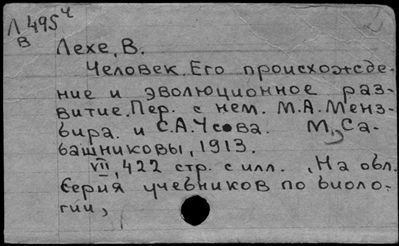 Л 495 ч
В
Лехе, В.
Человек. Его происхожде-
ние и эволюционное раз-
витие. Пер. с нем. М.А. Менз-
бира. и С.А. Усова. М., Са-
башниковы, 1913.
VII, 422 стр. с илл. , На обл.
Серия учебников по биоло-
гии,